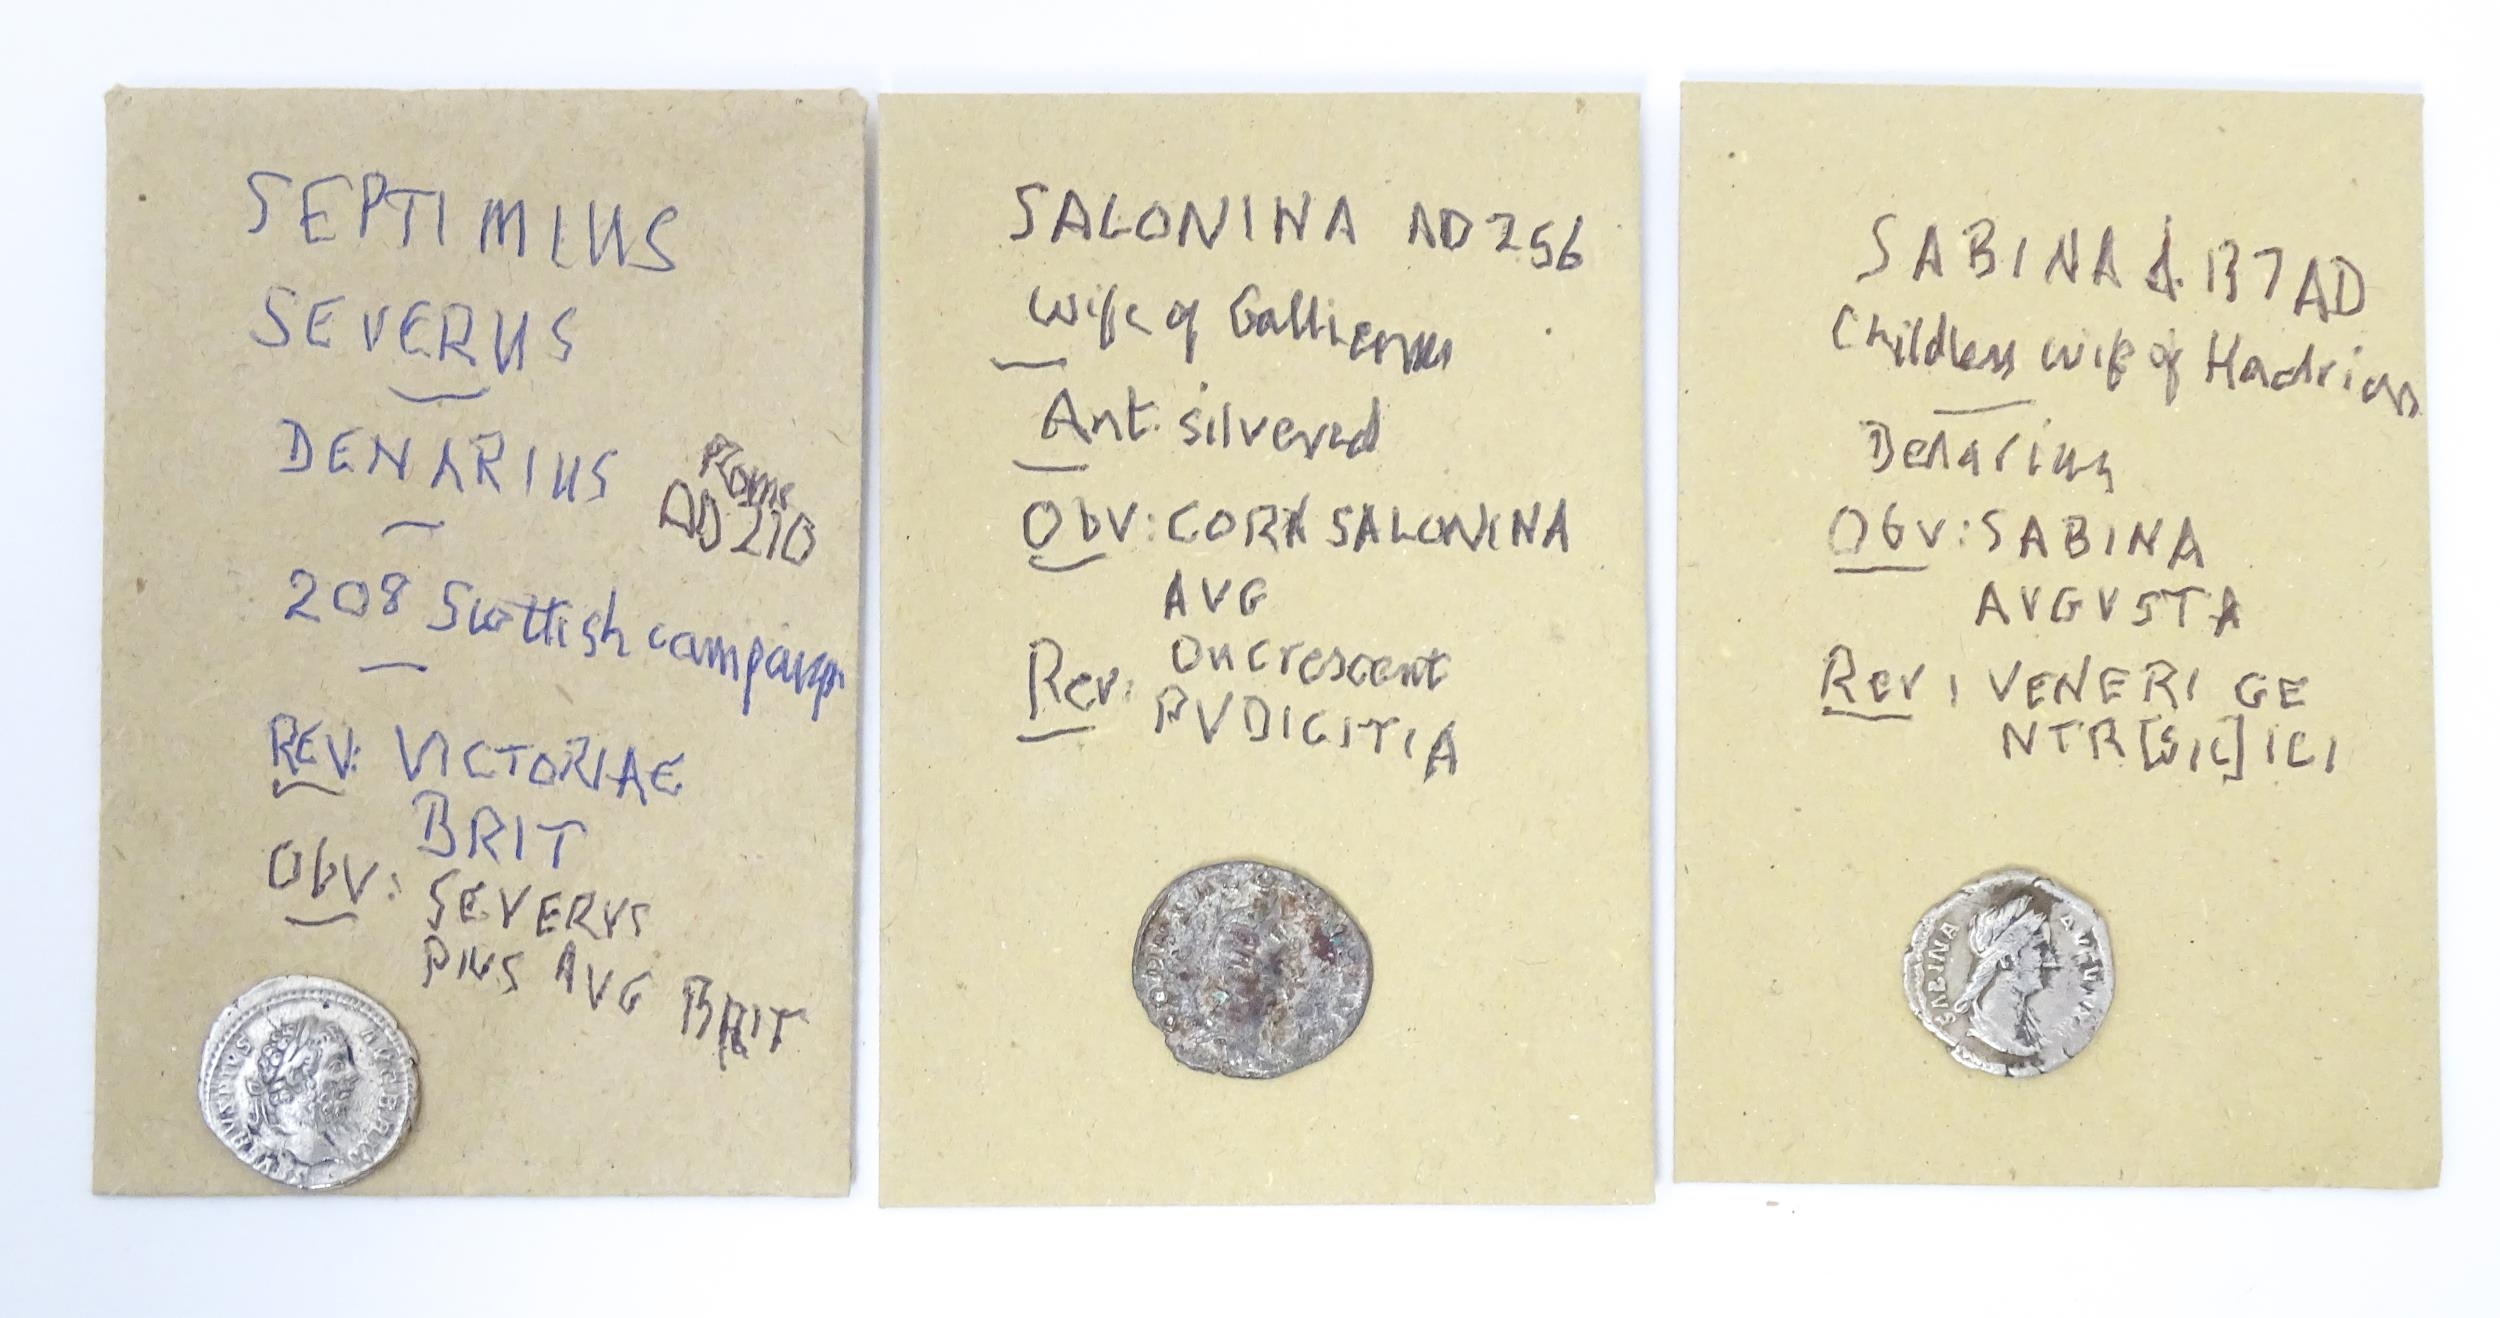 SEPTIMIUS
SEVERUS
DENARIUS
Rome
AD 210
208 Scottish campaign
REV: VICTORIAE
BRIT
Obv: SEVERVS
PIUS AVG BRIT
SEVERVS PIVS AVG BRIT
SALONINA AD 256
Wife of Gallienus
Ant. silvered
Obv: CORN SALONINA
AVG
on crescent
Rev: PVDICITIA
SABINA d. 137 AD
Childless wife of Hadrian
Denarius
Obv: SABINA
AVGVSTA
Rev: VENERI GE
NTR[SIC]ICI
SABINA AVGVSTA